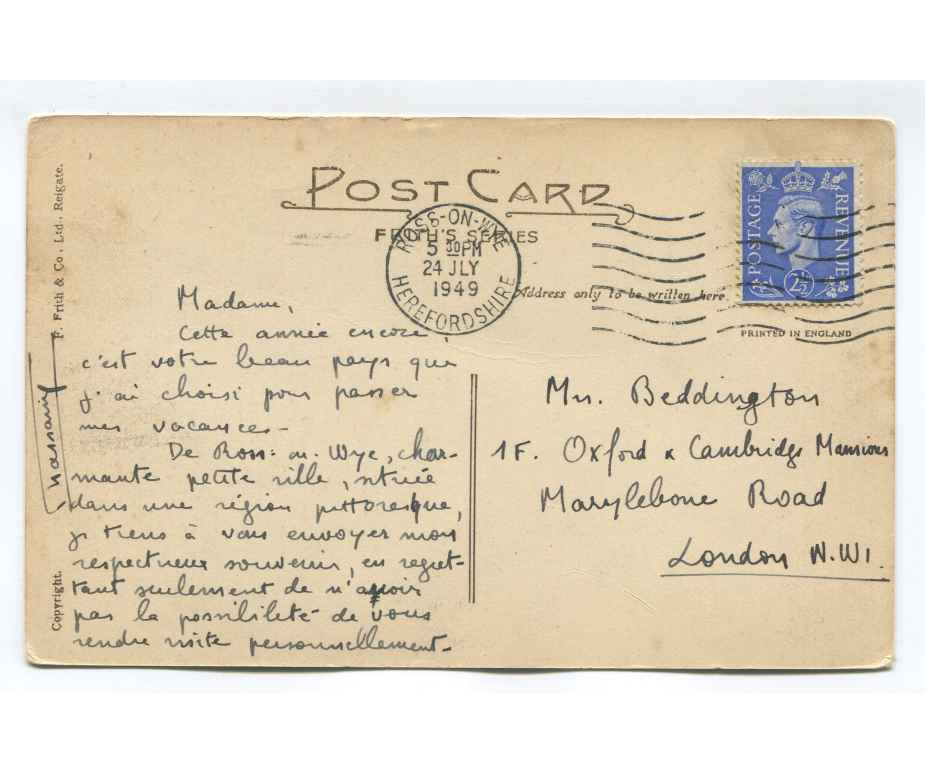 POST CARD
FRITH'S SERIES
ROSS-ON-WYE
5 30 PM
24 JLY
1949
HEREFORDSHIRE
POSTAGE REVENUE
2½D
Address only to be written here
PRINTED IN ENGLAND
Copyright. F. Frith & Co., Ltd., Reigate.
Madame,
Cette année encore,
c'est votre beau pays que
j'ai choisi pour passer
mes vacances-
De Ross-on-Wye, char-
mante petite ville, située
dans une région pittoresque,
je tiens à vous envoyer mon
respectueux souvenir, en regret-
tant seulement de n'avoir
pas la possibilité de vous
rendre visite personnellement-
Mrs. Beddington
1F. Oxford & Cambridge Mansions
Marylebone Road
London N.W1.